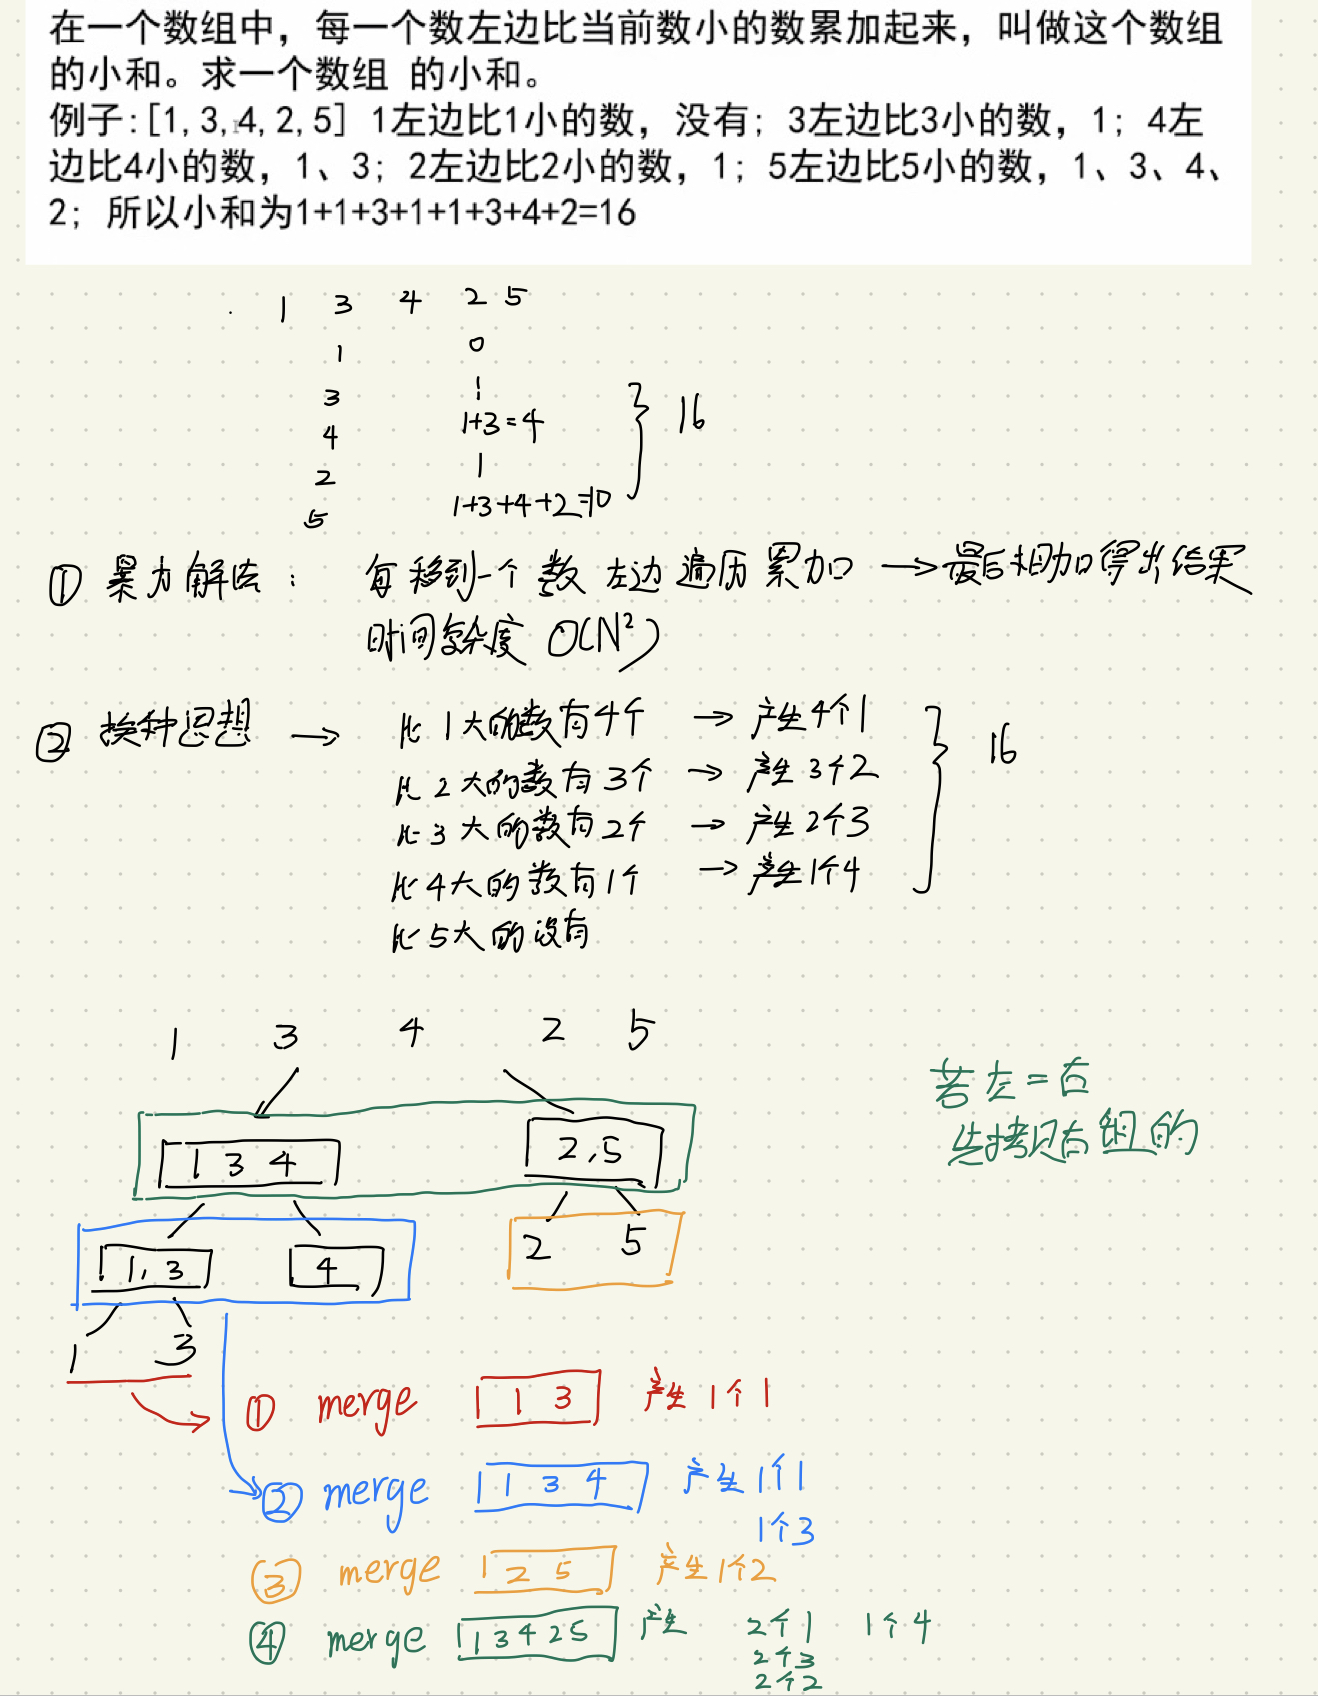 在一个数组中，每一个数左边比当前数小的数累加起来，叫做这个数组
的小和。求一个数组 的小和。
例子:[1,3,4,2,5] 1左边比1小的数，没有；3左边比3小的数，1；4左
边比4小的数，1、3；2左边比2小的数，1；5左边比5小的数，1、3、4、
2；所以小和为1+1+3+1+1+3+4+2=16
1 3 4 2 5
1 0
3 1
4 1+3=4
2 1
5 1+3+4+2=10
} 16
① 暴力解法： 每移到一个数 左边遍历累加 → 最后相加得出结果
时间复杂度 O(N²)
② 换种思想 → 比1大的数有4个 → 产生4个1
比2大的数有3个 → 产生3个2
比3大的数有2个 → 产生2个3
比4大的数有1个 → 产生1个4
比5大的没有
} 16
1 3 4 2 5
若左=右
先拷贝右组的
1 3 4 2,5
1,3 4 2 5
1 3
① merge 1 3 产生1个1
② merge 1 3 4 产生1个1
1个3
③ merge 2 5 产生1个2
④ merge 1 3 4 2 5 产生 2个1 1个4
2个3
2个2